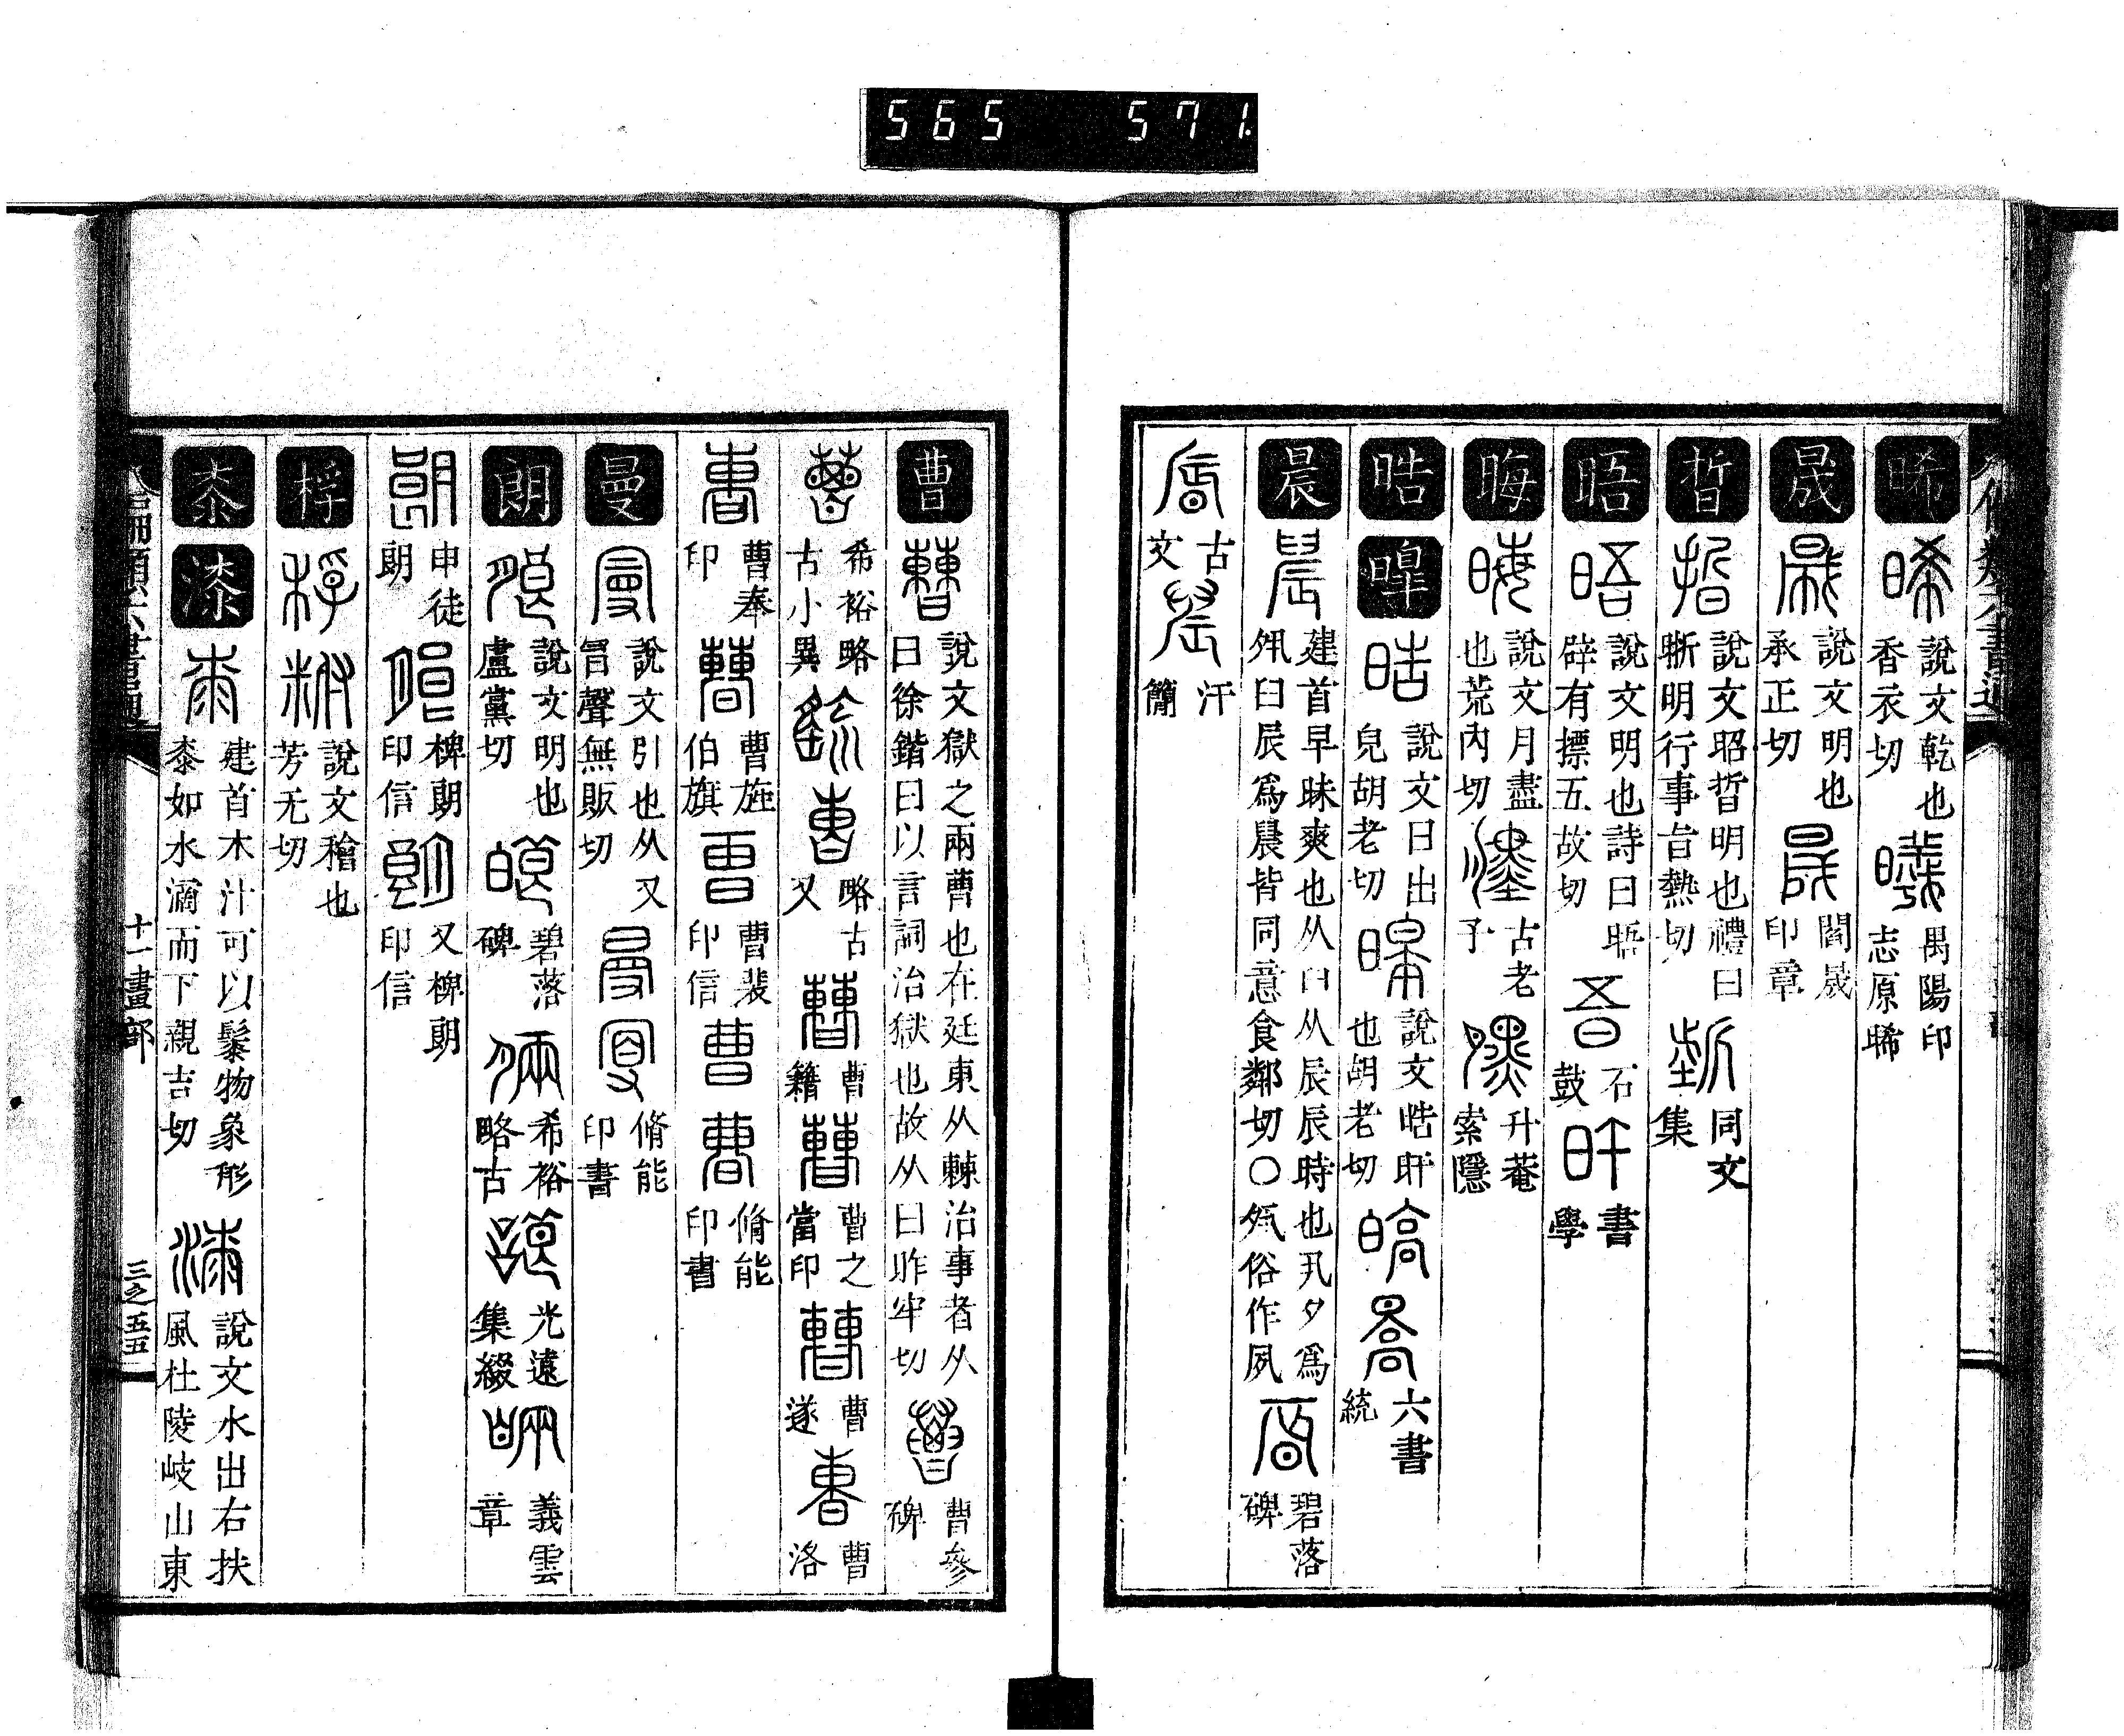 565 571
晞 說文乾也香衣切 禺陽印 志原晞
晟 說文明也承正切 閻晟印章
晢 說文昭晢明也禮曰晣明行事旨熱切 同文集
晤 說文明也詩曰晤辟有摽五故切 石鼓 書學
晦 說文月盡也荒內切 古老子 升菴索隱
晧 皡 說文日出皃胡老切 說文晧旰也胡老切 六書統
晨 建首早昧爽也从臼从辰辰時也丮夕爲夙臼辰爲晨皆同意食鄰切〇夙俗作夙 碧落碑
古文 汗簡
曹 說文獄之兩曹也在廷東从棘治事者从曰徐鍇曰以言詞治獄也故从曰昨牢切 曹參碑
希裕略古小異 略古 又 曹籍 曹之當印 曹遂 曹洛
曹奉印 曹旌伯旗 曹裴印信 脩能印書
曼 說文引也从又冒聲無販切 脩能印書
朗 說文明也盧黨切 碧落碑 希裕略古 光遠集綴 義雲章
申徒朗 椑朗印信 又椑朗印信
桴 說文䅫也芳无切
桼 漆 建首木汁可以髹物象形桼如水滴而下親吉切 說文水出右扶風杜陵岐山東
編類六書通 十一畫部 三之五五